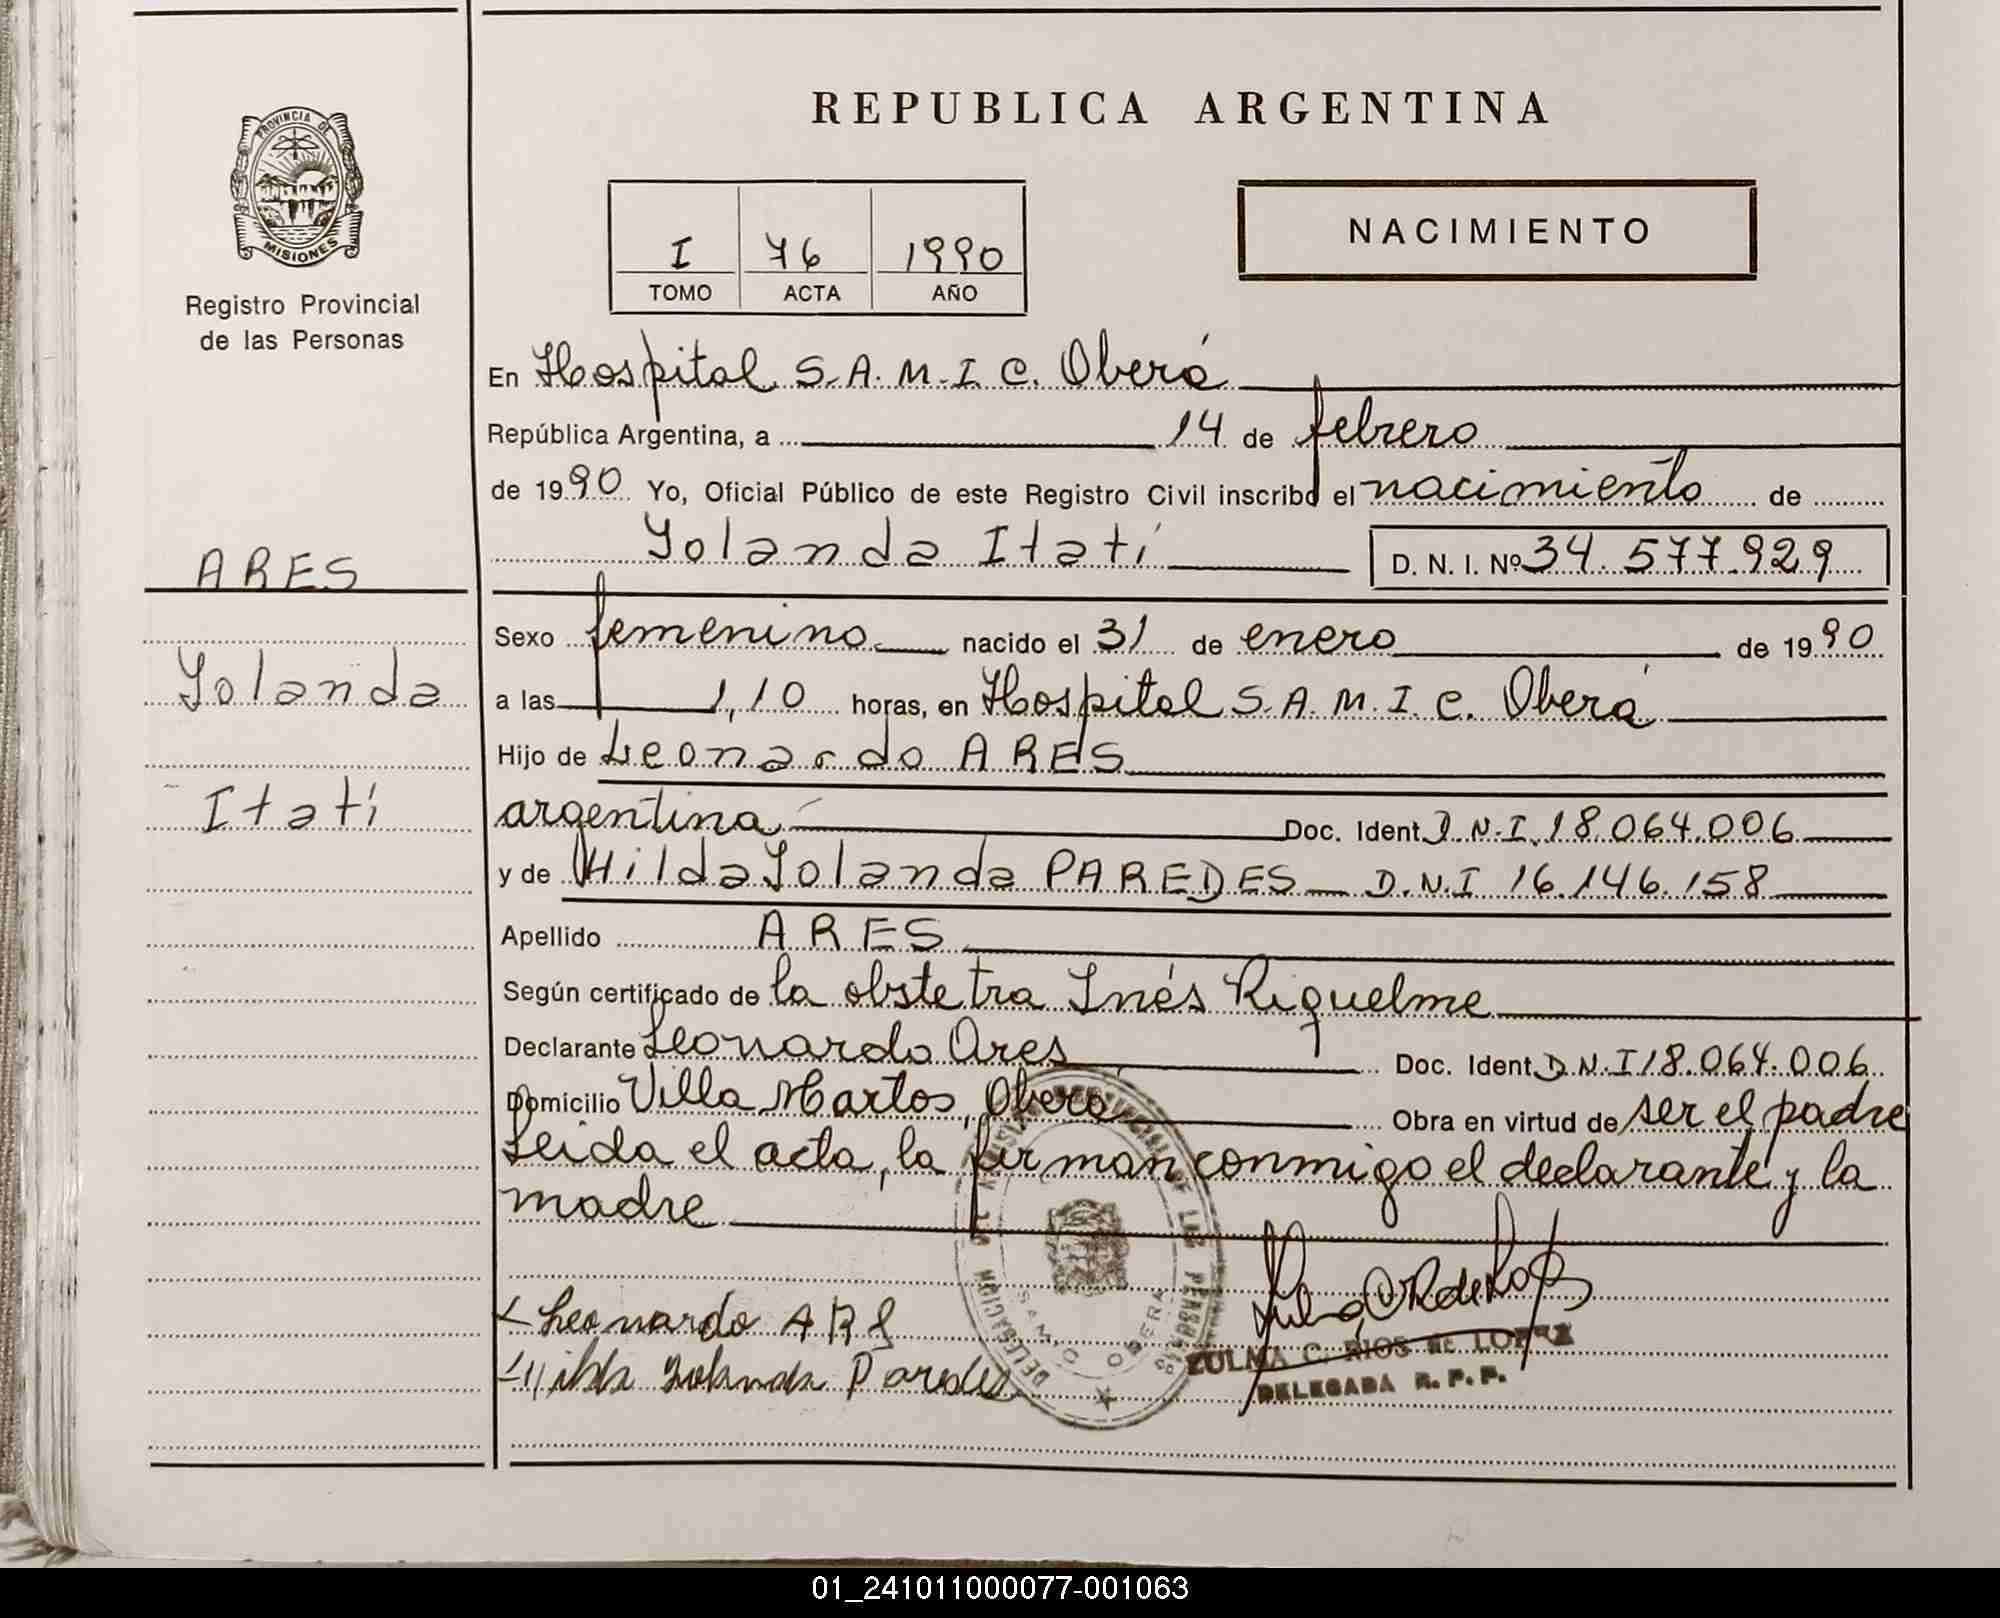 REPUBLICA ARGENTINA
PROVINCIA DE
MISIONES
Registro Provincial
de las Personas
I 76 1990
TOMO ACTA AÑO
NACIMIENTO
En Hospital S.A.M.I.C. Oberá
República Argentina, a 14 de febrero
de 1990 Yo, Oficial Público de este Registro Civil inscribo el nacimiento de
Yolanda Itatí D. N. I. Nº 34.577.929
ARES
Yolanda
Itatí
Sexo femenino nacido el 31 de enero de 1990
a las 1,10 horas, en Hospital S.A.M.I.C. Oberá
Hijo de Leonardo ARES
argentina Doc. Ident. D.N.I. 18.064.006
y de Hilda Yolanda PAREDES D.N.I 16.146.158
Apellido ARES
Según certificado de la obstetra Inés Riquelme
Declarante Leonardo Ares Doc. Ident. D.N.I 18.064.006
Domicilio Villa Martos, Oberá Obra en virtud de ser el padre
Leida el acta, la firman conmigo el declarante y la
madre
Leonardo ARS
Hilda Yolanda Paredes
DELEGACION
DE LAS PERSONAS
SAMIC OBERA
ZULMA C. RIOS de LOPEZ
DELEGADA R. P. P.
01_241011000077-001063